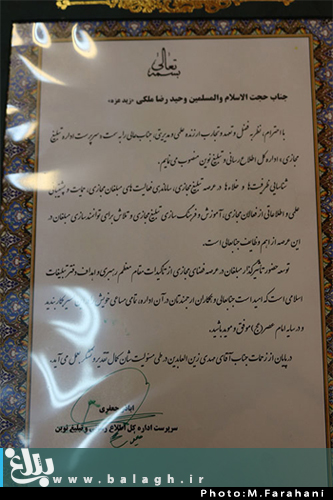 بسمه تعالی
جناب حجت الاسلام والمسلمین وحید رضا ملکی «زید عزه»
با احترام، نظر به فضل و تعهد و تجارب ارزنده علمی و مدیریتی، جنابعالی را به سمت «سرپرست اداره تبلیغ
مجازی» اداره کل اطلاع رسانی و تبلیغ نوین منصوب می نمایم.
شناسایی ظرفیت ها و خلاء ها در عرصه تبلیغ مجازی، ساماندهی فعالیت های مبلغان مجازی، حمایت و پشتیبانی
علمی و اطلاعاتی از فعالان مجازی، آموزش و فرهنگ سازی تبلیغ مجازی و تلاش برای توانمندسازی مبلغان در
این عرصه از اهم وظایف جنابعالی است.
توسعه حضور تأثیرگذار مبلغان در عرصه فضای مجازی از تاکیدات مقام معظم رهبری و اهداف دفتر تبلیغات
اسلامی است که امید است جنابعالی و همکاران ارجمندتان در آن اداره، تمامی مساعی خویش را در این مسیر بکار بندید
و در سایه امام عصر (عج) موفق و موید باشید.
در پایان از زحمات جناب آقای مهدی زین العابدین در طی مسئولیت شان کمال تقدیر و تشکر بعمل می آید.
جعفری
سرپرست اداره کل اطلاع رسانی و تبلیغ نوین
بلاغ
www.balagh.ir
Photo:M.Farahani